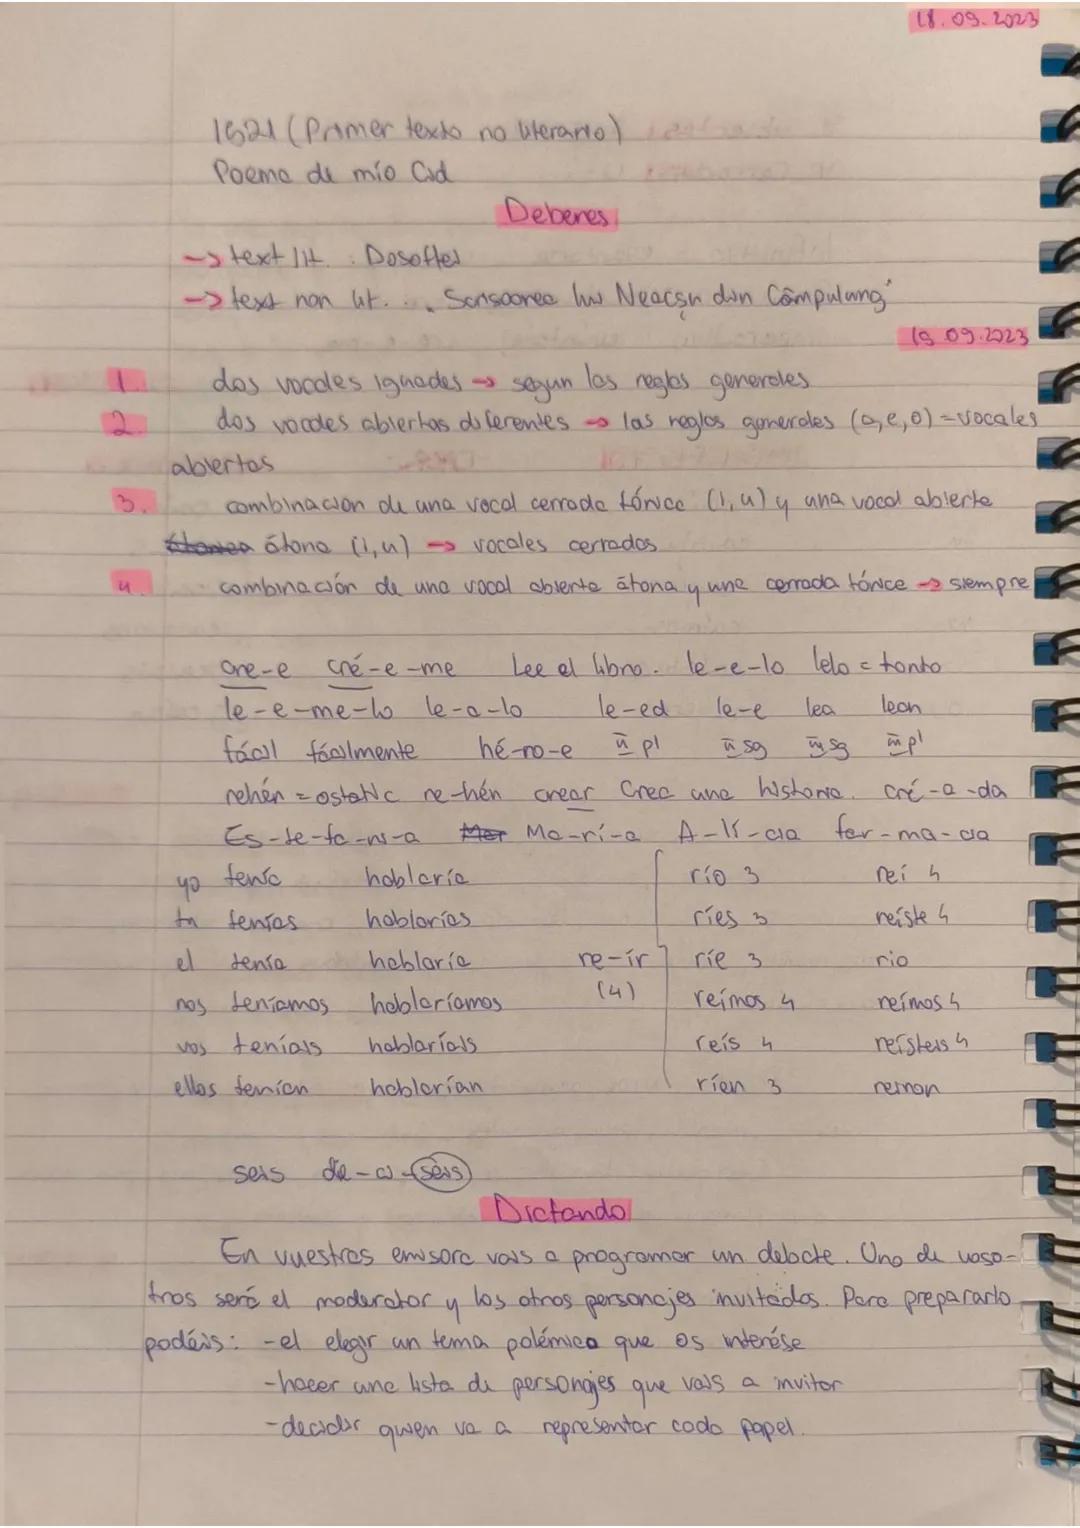 18.09.2023
1521 (Primer texto no literario)
Poema de mío Cid
Deberes
-> text lit. : Dosoftei
-> text non lit. : Scrisoarea lui Neacșu din Câmpulung
19.09.2023
1. dos vocales iguales -> segun las reglas generales
2. dos vocales abiertas diferentes -> las reglas generales (a,e,o) = vocales
abiertas
3. combinacion de una vocal cerrada tónica (i,u) y una vocal abierta
átona (i,u) -> vocales cerradas
4. combinación de una vocal abierta átona y una cerrada tónica -> siempre
cre-e cré-e-me Lee el libro. le-e-lo lelo = tonto
le-e-me-lo le-a-lo le-ed le-e lea lean
fácil fácilmente hé-ro-e II pl II sg III sg III pl
rehén = ostatic re-hén crear Crea una historia. cré-a-da
Es-te-fa-ni-a Ma-rí-a A-li-cia far-ma-cia
yo tenía hablaría río 3 reí 4
tu tenías hablarías ríes 3 reíste 4
el tenía hablaría re-ír ríe 3 rio
nos teníamos hablaríamos (4) reímos 4 reímos 4
vos teníais hablaríais reís 4 reísteis 4
ellos tenían hablarían ríen 3 rieron
seis die-ci-séis
Dictando
En vuestras emisora vais a programar un debate. Uno de voso-
tros será el moderator y los otros personajes invitados. Para prepararlo
podéis: -el elegir un tema polémico que os interése
-hacer una lista de personajes que vais a invitar
-decidir quien va a representar cada papel.